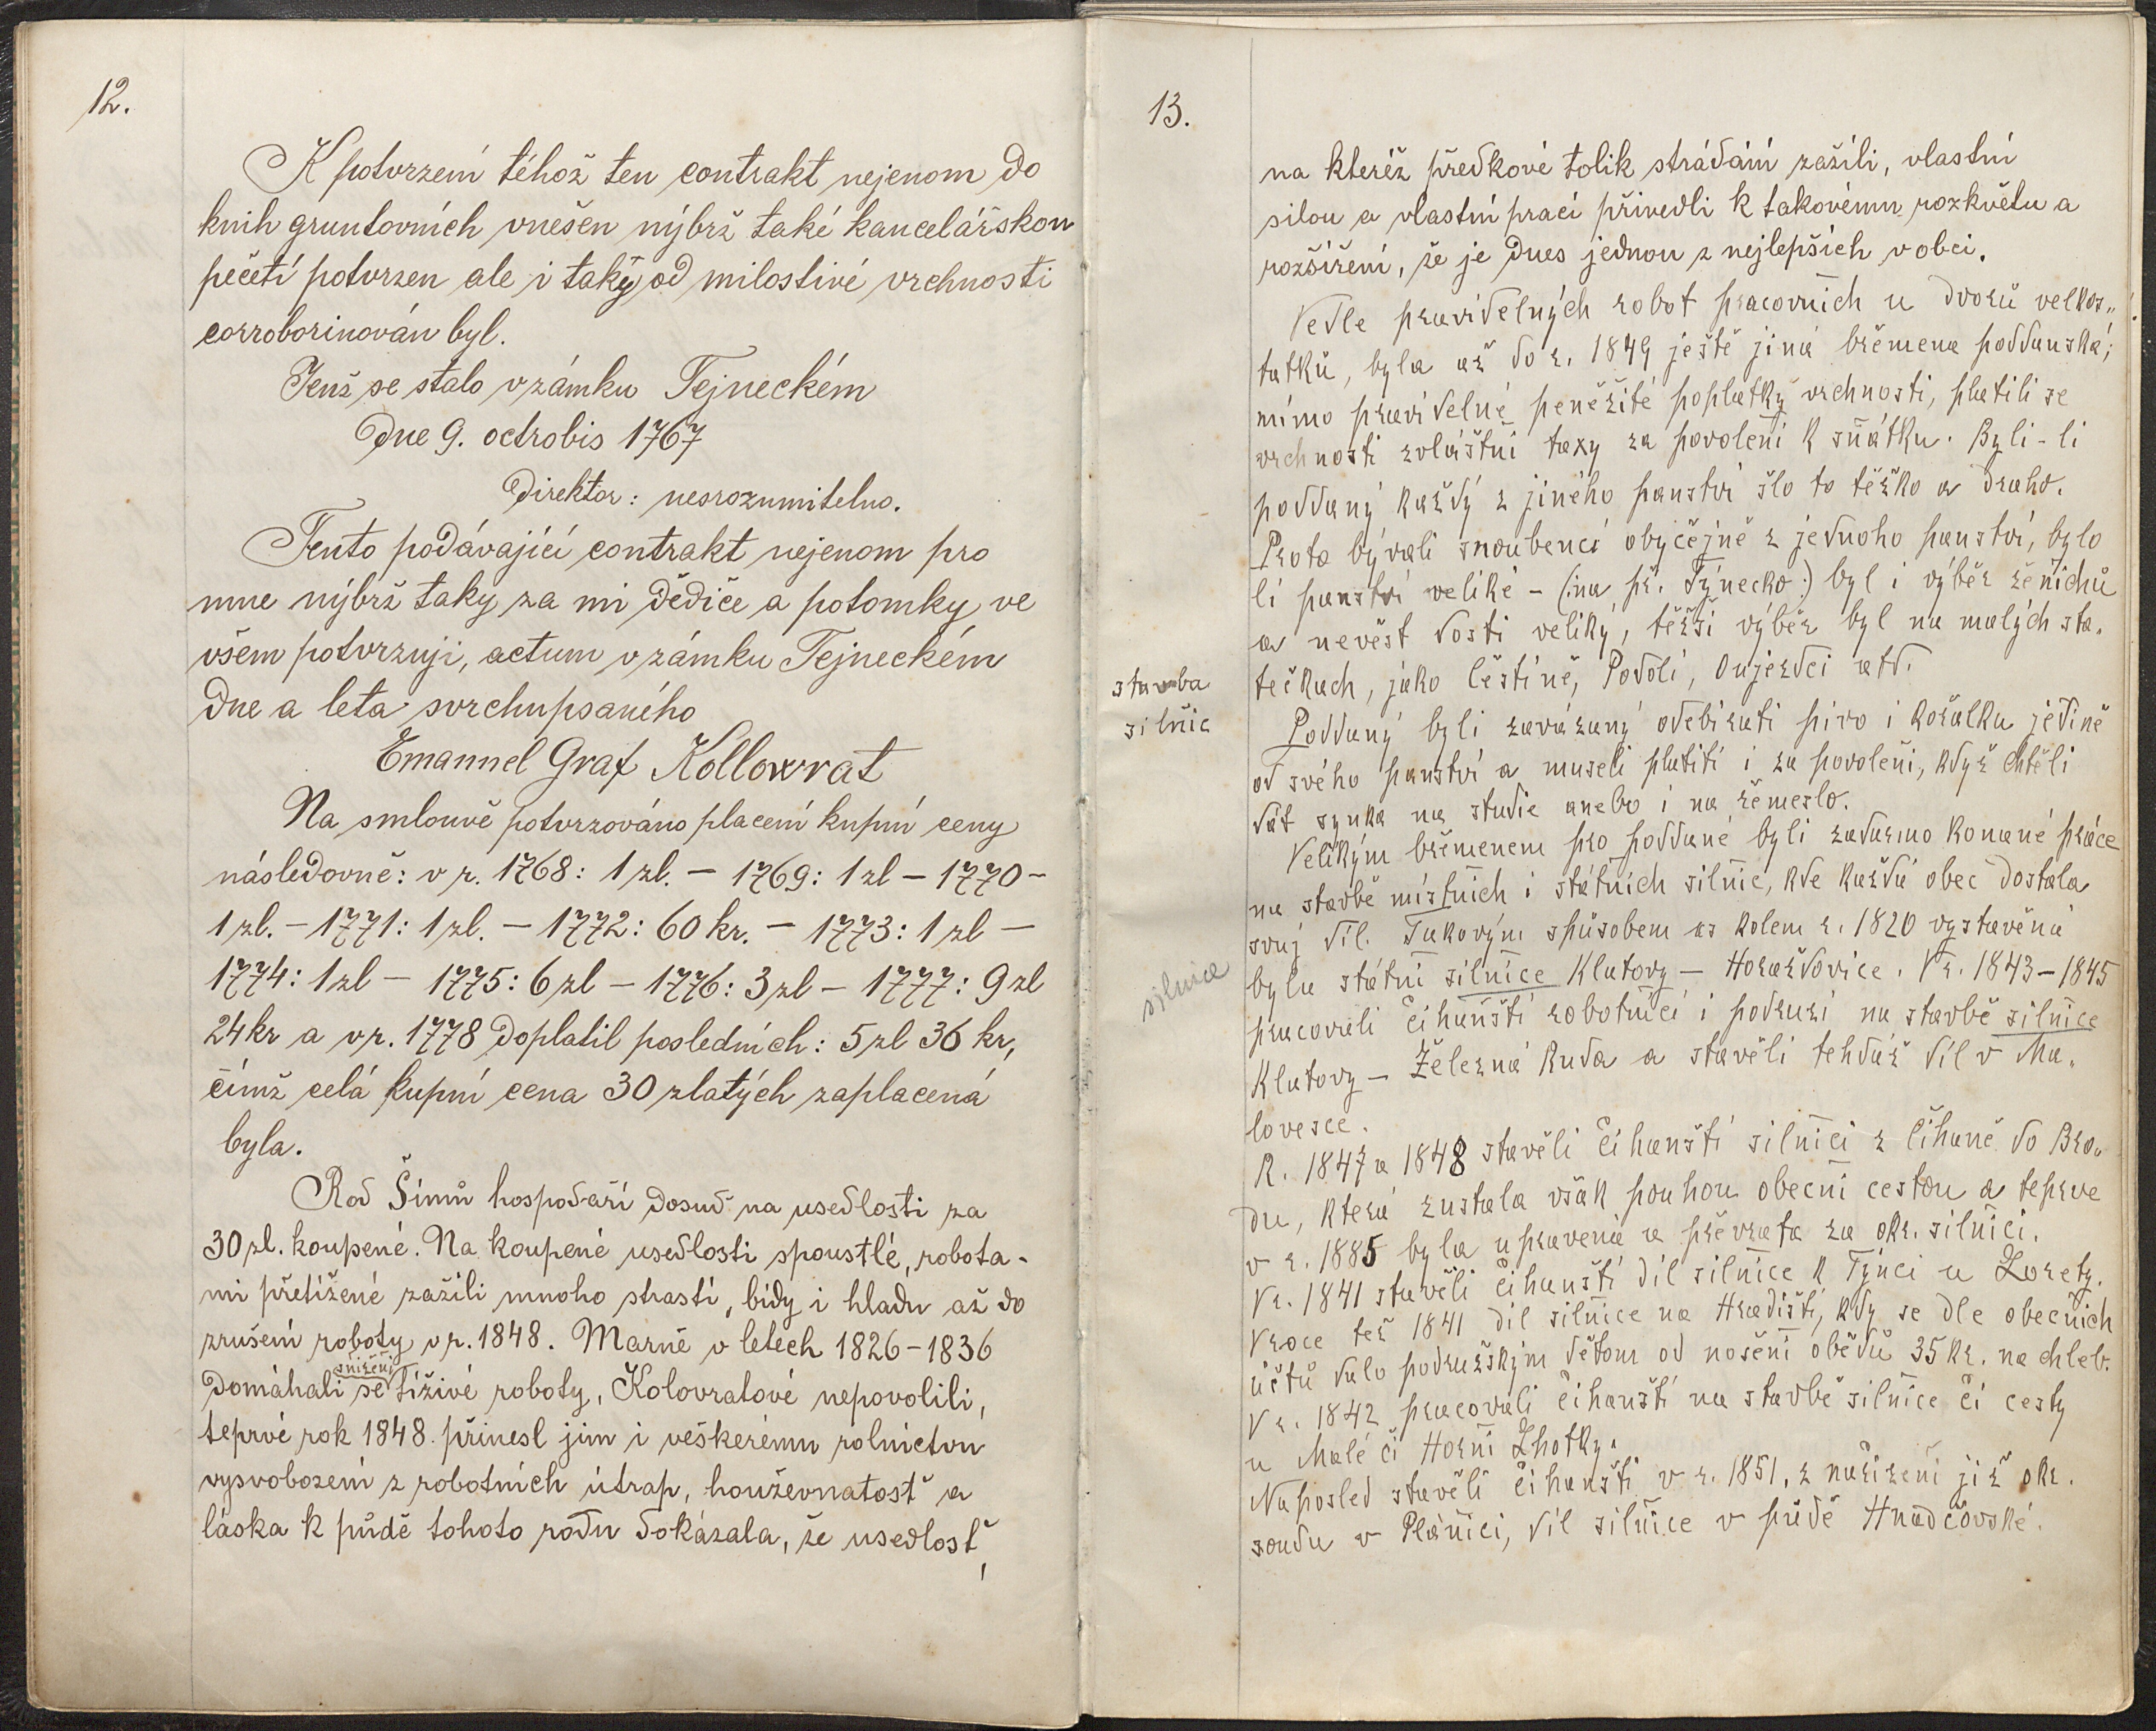 12.
K potvrzení téhož ten contrakt nejenom do
knih gruntovních vnešen nýbrž také kancelářskou
pečetí potvrzen ale i taky od milostivé vrchnosti
corroborinován byl.
Jenž se stalo v zámku Tejneckém
Dne 9. octrobis 1767
Direktor: nesrozumitelno.
Tento podávající contrakt nejenom pro
mne nýbrž taky za mi dědiče a potomky ve
všem potvrzuji, actum v zámku Tejneckém
dne a leta svrchupsaného
Emanuel Graf Kollowrat
Na smlouvě potvrzováno placení kupní ceny
následovně: v r. 1768: 1 zl. – 1769: 1 zl – 1770 –
1 zl. – 1771: 1 zl. – 1772: 60 kr. – 1773: 1 zl –
1774: 1 zl – 1775: 6 zl – 1776: 3 zl – 1777: 9 zl
24 kr a v r. 1778 doplatil posledních: 5 zl 36 kr,
čímž celá kupní cena 30 zlatých zaplacená
byla.
Rod Šimů hospodaří dosud na usedlosti za
30 zl. koupené. Na koupené usedlosti spoustlé, robota-
mi přetížené zažili mnoho strastí, bídy i hladu až do
zrušení roboty v r. 1848. Marně v letech 1826-1836
snížení
domáhali se tíživé roboty, Kolovratové nepovolili,
teprvé rok 1848 přinesl jim i veškerému rolnictvu
vysvobození z robotních útrap, houževnatosť a
láska k půdě tohoto rodu dokázala, že usedlosť,
13.
na kteréž předkové tolik strádání zažili, vlastní
silou a vlastní prací přivedli k takovému rozkvětu a
rozšíření, že je dnes jednou z nejlepších v obci.
Vedle pravidelných robot pracovních u dvorů velkos„
tatků, byla až do r. 1849 ještě jiná břemena poddanská;
mimo pravidelné peněžité poplatky vrchnosti, platili se
vrchnosti zvláštní taxy za povolení k sňátku. Byli-li
poddaný každý z jiného panství šlo to těžko a draho.
Proto bývali snoubenci obyčejně z jednoho panství, bylo
li panství veliké – (:na př. Týnecko:) byl i výběr ženichů
a nevěst dosti veliký, těžší výběr byl na malých sta„
tečkach, jako Čéstíně, Podolí, Oujezdci atd.
stavba
silnic
Poddaný byli zavázaný odebírati pivo i kořalku jedině
od svého panství a museli platiti i za povolení, když chtěli
dát synka na studie anebo i na řemeslo.
Velikým břemenem pro poddané byli zadarmo konané práce
na stavbě místních i státních silnic, kde každá obec dostala
svuj díl. Takovým spůsobem as kolem r. 1820 vystavěná
byla státní silnice Klatovy – Horažďovice. V r. 1843-1845
silnice
pracovali čihanští robotníci i podruzí na stavbě silnice
Klatovy – Železná Ruda a stavěli tehdáž díl v Ma„
lovesce.
R. 1847 a 1848 stavěli čihanští silnici z Číhaně do Bro„
du, která zustala však pouhou obecní cestou a teprve
v r. 1885 byla upravená a převzata za okr. silnici.
V r. 1841 stavěli čihanští díl silnice k Týnci u Lorety.
V roce též 1841 díl silnice na Hradišti, kdy se dle obecních
účtů dalo podružským dětom od nošení obědů 35 kr. na chleb.
V r. 1842 pracovali čihanští na stavbě silnice či cesty
u Malé či Horní Lhotky.
Naposled stavěli čihanští v r. 1851, z nařízení již okr.
soudu v Plánici, díl silnice v půdě Hnadčovské.